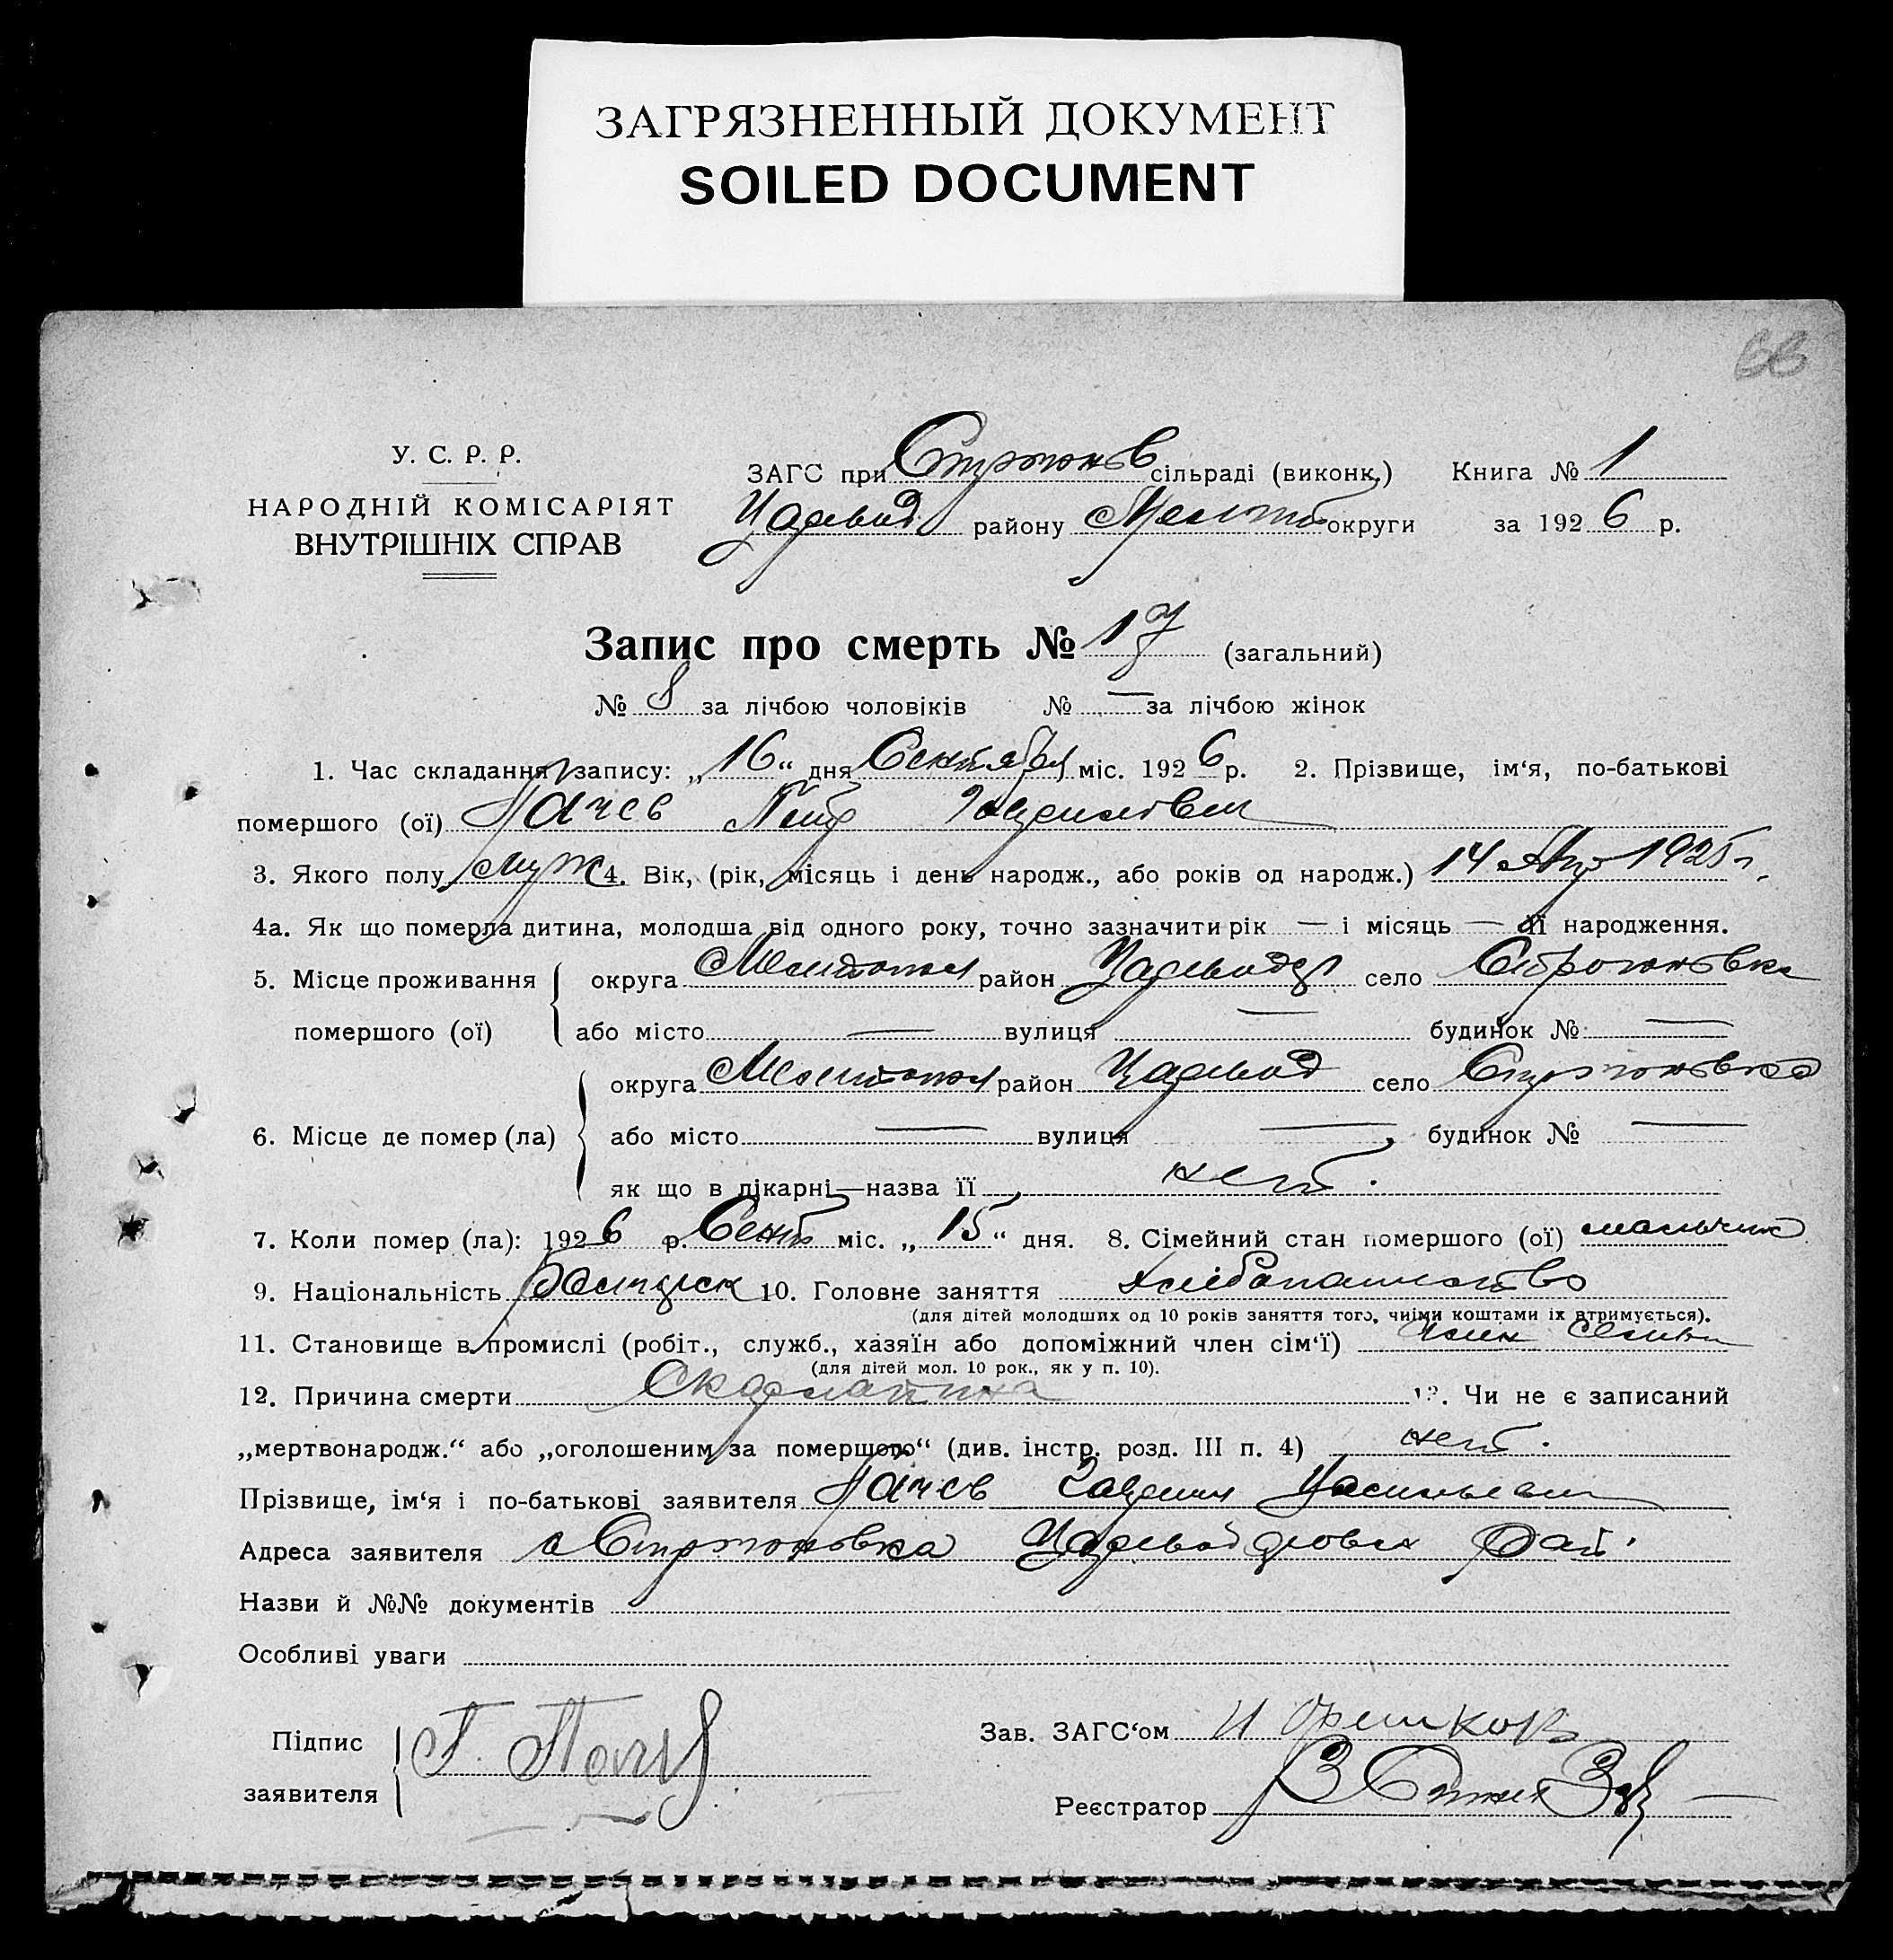 ЗАГРЯЗНЕННЫЙ ДОКУМЕНТ
SOILED DOCUMENT
66
У. С. Р. Р.
НАРОДНІЙ КОМІСАРІЯТ
ВНУТРІШНІХ СПРАВ
ЗАГС при Строганов сільраді (виконк.) Книга № 1
Царевод району Мелит округи за 1926 р.
Запис про смерть № 17 (загальний)
№ 8 за лічбою чоловіків № — за лічбою жінок
1. Час складання запису: „16“ дня Сентября міс. 1926 р. 2. Прізвище, ім‘я, по-батькові
помершого (ої) Начев Петр
3. Якого полу муж 4. Вік, (рік, місяць і день народж., або років од народж.) 14 Апр 1925 г.
4а. Як що померла дитина, молодша від одного року, точно зазначити рік — і місяць — її народження.
5. Місце проживання округа Мелитопол район Царевод село Строгановка
помершого (ої) або місто — вулиця — будинок № —
округа Мелитопол район Царевод село Строгановка
6. Місце де помер (ла) або місто — вулиця — будинок № —
як що в лікарні—назва її нет.
7. Коли помер (ла): 1926 р. Сент міс. „15“ дня. 8. Сімейний стан помершого (ої) мальчик
9. Національність 10. Головне заняття хлібопашество
(для дітей молодших од 10 років заняття того, чиїми коштами їх втримується).
11. Становище в промислі (робіт., служб., хазяїн або допоміжний член сім‘ї) член семьи
(для дітей мол. 10 рок., як у п. 10).
12. Причина смерти Скарлатина 13. Чи не є записаний
„мертвонародж.“ або „оголошеним за помершого“ (див. інстр. розд. III п. 4) нет.
Прізвище, ім‘я і по-батькові заявителя Начев
Адреса заявителя с Строгановка Рай.
Назви й №№ документів
Особливі уваги
Підпис
заявителя
Зав. ЗАГС‘ом
Реєстратор